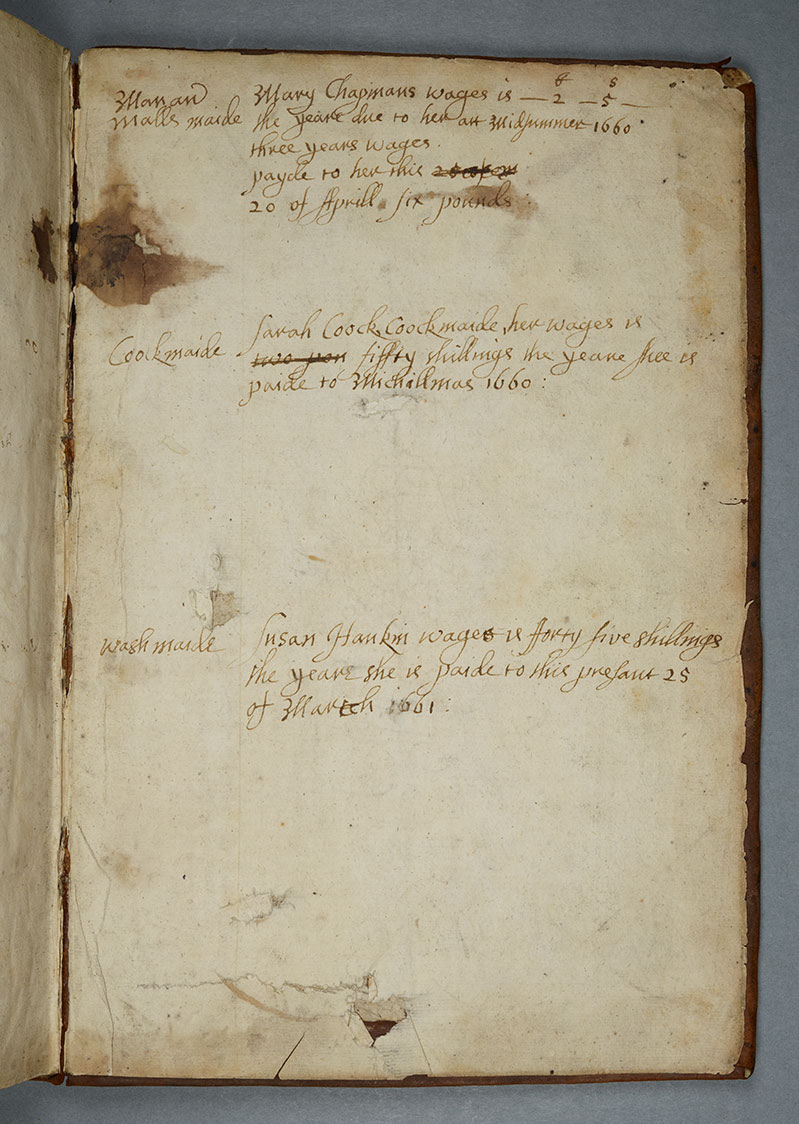 Manan
Malls maide
Mary Chapmans wages is — 2 — 5 —
£ s
the yeare due to her att Midsummer 1660
three years wages.
payde to her this
20 of Aprill six pounds :
Coockmaide
Sarah Coock Coockmaide, her wages is
two pon fiffty shillings the yeare shee is
paide to Michillmas 1660 :
wash maide
Susan Hankin wages is fforty five shillings
the yeare she is paide to this presant 25
of March 1661 :